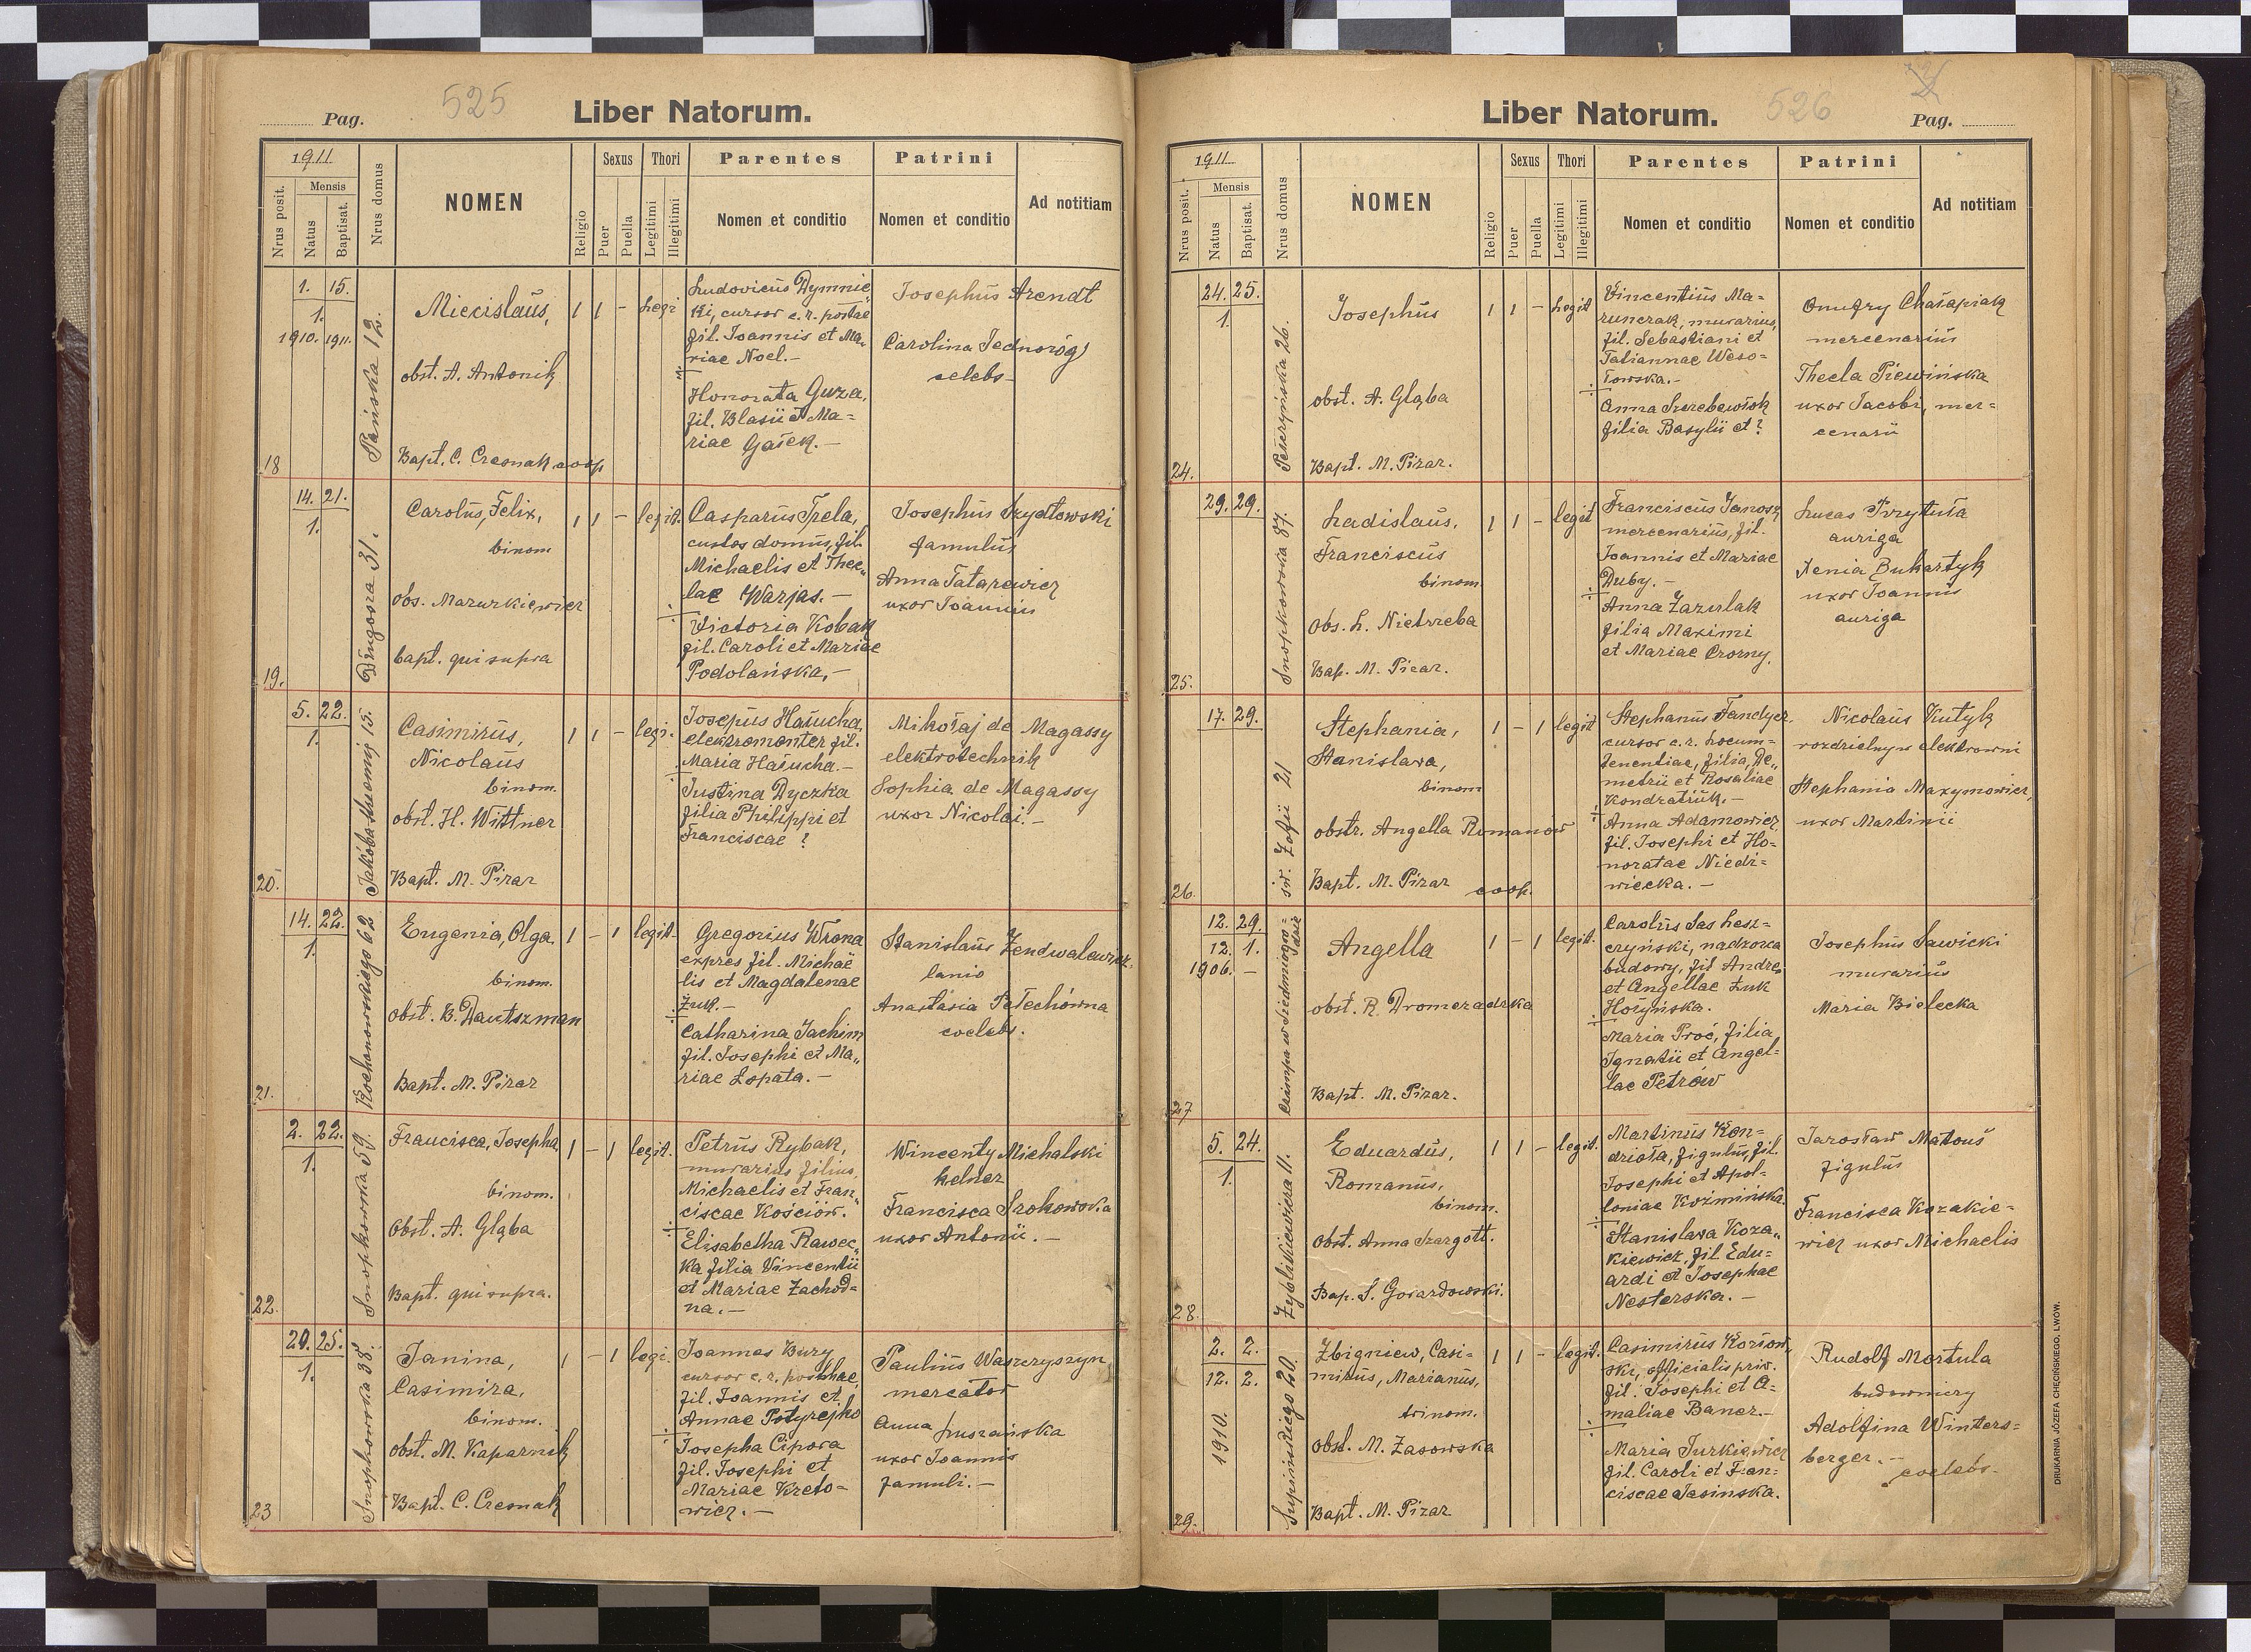 525
Pag.
Liber Natorum.
1911
Nrus posit.
Mensis
Natus
Baptisat.
Nrus domus
NOMEN
Religio
Sexus
Puer
Puella
Thori
Legitimi
Illegitimi
Parentes
Nomen et conditio
Patrini
Nomen et conditio
Ad notitiam
18
1. 15.
1.
1910. 1911.
Pańska 12.
Miecislaus,
obst. A. Antonik
Bapt. C. Cresnak coop
1 1 - legi
Ludovicus Dymnic
ki, cursor c. r. postae
fil. Joannis et Ma,,
riae Noel.-
Honorata Guza,
fil. Blasii et Ma=
riae Gasek.-
Josephus Arendt
Carolina Jednoróg
celebs-
19.
14. 21.
1.
31.
Carolus, Felix,
binom
obs. Mazurkiewicz
bapt. qui supra
1 1 - legit.
Casparus Trela,
custos domus, fil.
Michaelis et Thec,,
lae Warjas.-
Victoria Kobak
fil. Caroli et Mariae
Podolańska,-
Josephus Szydłowski
famulus
Anna Tatarewicz
uxor Joannis
20.
5. 22.
1.
Jakóba 15.
Casimirus,
Nicolaus
binom.
obst. H. Wittner
Bapt. M. Pizar
1 1 - legi.
Josepus Hałucha
elektromonter fil.
Maria Hałucha.-
Justina Dyczka
filia Philippi et
Franciscae ?
Mikołaj de Magassy
elektrotechnik
Sophia de Magassy
uxor Nicolai.-
21.
14. 22.
1.
Kochanowskiego 62
Eugenia, Olga.
binom.
obst. B. Dautszman
Bapt. M. Pizar
1 - 1 legit.
Gregorius Wrona
expres fil. Michaë
lis et Magdalenae
Żuk.-
Catharina Jachim
fil. Josephi et Ma,,
riae Łopata.-
Stanislaus Zendwalewicz
lanio
Anastasia Pełechówna
coelebs.
22.
2. 22.
1.
Snopkowska 59.
Francisca, Josepha
binom.
Obst. A. Głąba
Bapt. qui supra.
1 - 1 legit.
Petrus Rybak,
murarius filius
Michaelis et Fran,,
ciscae Kościów.
Elisabetha Rawec,,
ka filia Vincentii
et Mariae Zachod=
na.-
Wincenty Michalski
kelner
Francisca Srokowska
uxor Antonii.-
23
20. 25.
1.
Snopkowska 38.
Janina,
Casimira,
binom.
obst. M. Kaparnik
Bapt. C. Cresnak
1 - 1 legi.
Joannes Bury
cursor c. r. posthae,
fil. Joannis et
Annae Potyrejko
Josepha Cipora
fil. Josephi et
Mariae Kreto=
wicz.-
Paulius Waszczyszyn
mercator
Anna
uxor Joannis
famuli.-
Liber Natorum.
526
Pag.
1911
Nrus posit.
Mensis
Natus
Baptisat.
Nrus domus
NOMEN
Religio
Sexus
Puer
Puella
Thori
Legitimi
Illegitimi
Parentes
Nomen et conditio
Patrini
Nomen et conditio
Ad notitiam
24.
24. 25.
1.
26.
Josephus
obst. A. Głąba
Bapt. M. Pizar.
1 1 - legit
Vincentius Ma=
runczak, murarius,
fil. Sebastiani et
Tatiannae Weso=
łowska.-
Anna Szczebewiok
filia Basylii et?
Onufry Chałapiak
mercenarius
Thecla Piewińska
uxor Jacobi, mer=
cenarii
25.
29. 29.
Snopkowska 87.
Ladislaus,
Franciscus
binom
Obs. L. Nietrzeba
Bap. M. Pizar.
1 1 - legit
Franciscus Janosz
mercenarius, fil.
Joannis et Mariae
Duby.-
Anna Zazulak
filia Maximi
et Mariae Czorny.
Lucas Prytuła
auriga
Xenia Buhartyk
uxor Joannis
auriga
26.
17. 29.
św. Zofii 21
Stephania,
Stanislava,
binom
obstr. Angella Romanów
Bapt. M. Pizar coop.
1 - 1 legit
Stephanus Fandyer.
cursor c. r. Locum=
tenentiae, filia, De,,
metrii et Rosaliae
Kondratiuk.-
Anna Adamowicz
fil. Josephi et Ho=
noratae Niedz=
wiecka.-
Nicolaus Kutyk
rozdzielnyw elektrowni
Stephania Maxymowicz,
uxor Martinii
27
12. 29.
12. 1.
1906. -
Angella
obst. R. Dromeradzka
Bapt. M. Pizar.
1 - 1 legit.
Carolus Sas Lesz=
czyński, nadzorca
budowy, fil Andre
et Angellae Żuk
Hołyńska.
Maria Proć, filia
Ignatii et Angel=
lae Petrów
Josephus Sawicki
murarius
Maria Bielecka
28.
5. 24.
1.
Zyblikiewicza 11.
Eduardus,
Romanus,
binom.
Obst. Anna Szargott.
Bap. S. Gorardowski.
1 1 - legit.
Martinus Kon=
driota, figulus, fil.
Josephi et Apol=
loniae Koźmińska.
Stanislava Koza,,
kiewicz, fil. Edu=
ardi et Josephae
Nesterska.-
Jarosław Matouš
figulus
Francisca Kozakie=
wicz uxor Michaelis
29.
2. 2.
12. 2.
1910.
Supińskiego 20.
Zbigniew, Casi=
mirus, Marianus,
trinom.
Obst. M. Zasowska
Bapt. M. Pizar
1 1 - legit.
Casimirus Korzow
ski, officialis priv.
fil. Josephi et A=
maliae Baner.-
Maria Jurkiewicz
fil. Caroli et Fran=
ciscae Jasinska.
Rudolf Mortula
budowniczy
Adolfina Winters=
berger.-
coelebs.
DRUKARNIA JÓZEFA CHĘCIŃSKIEGO, LWÓW.